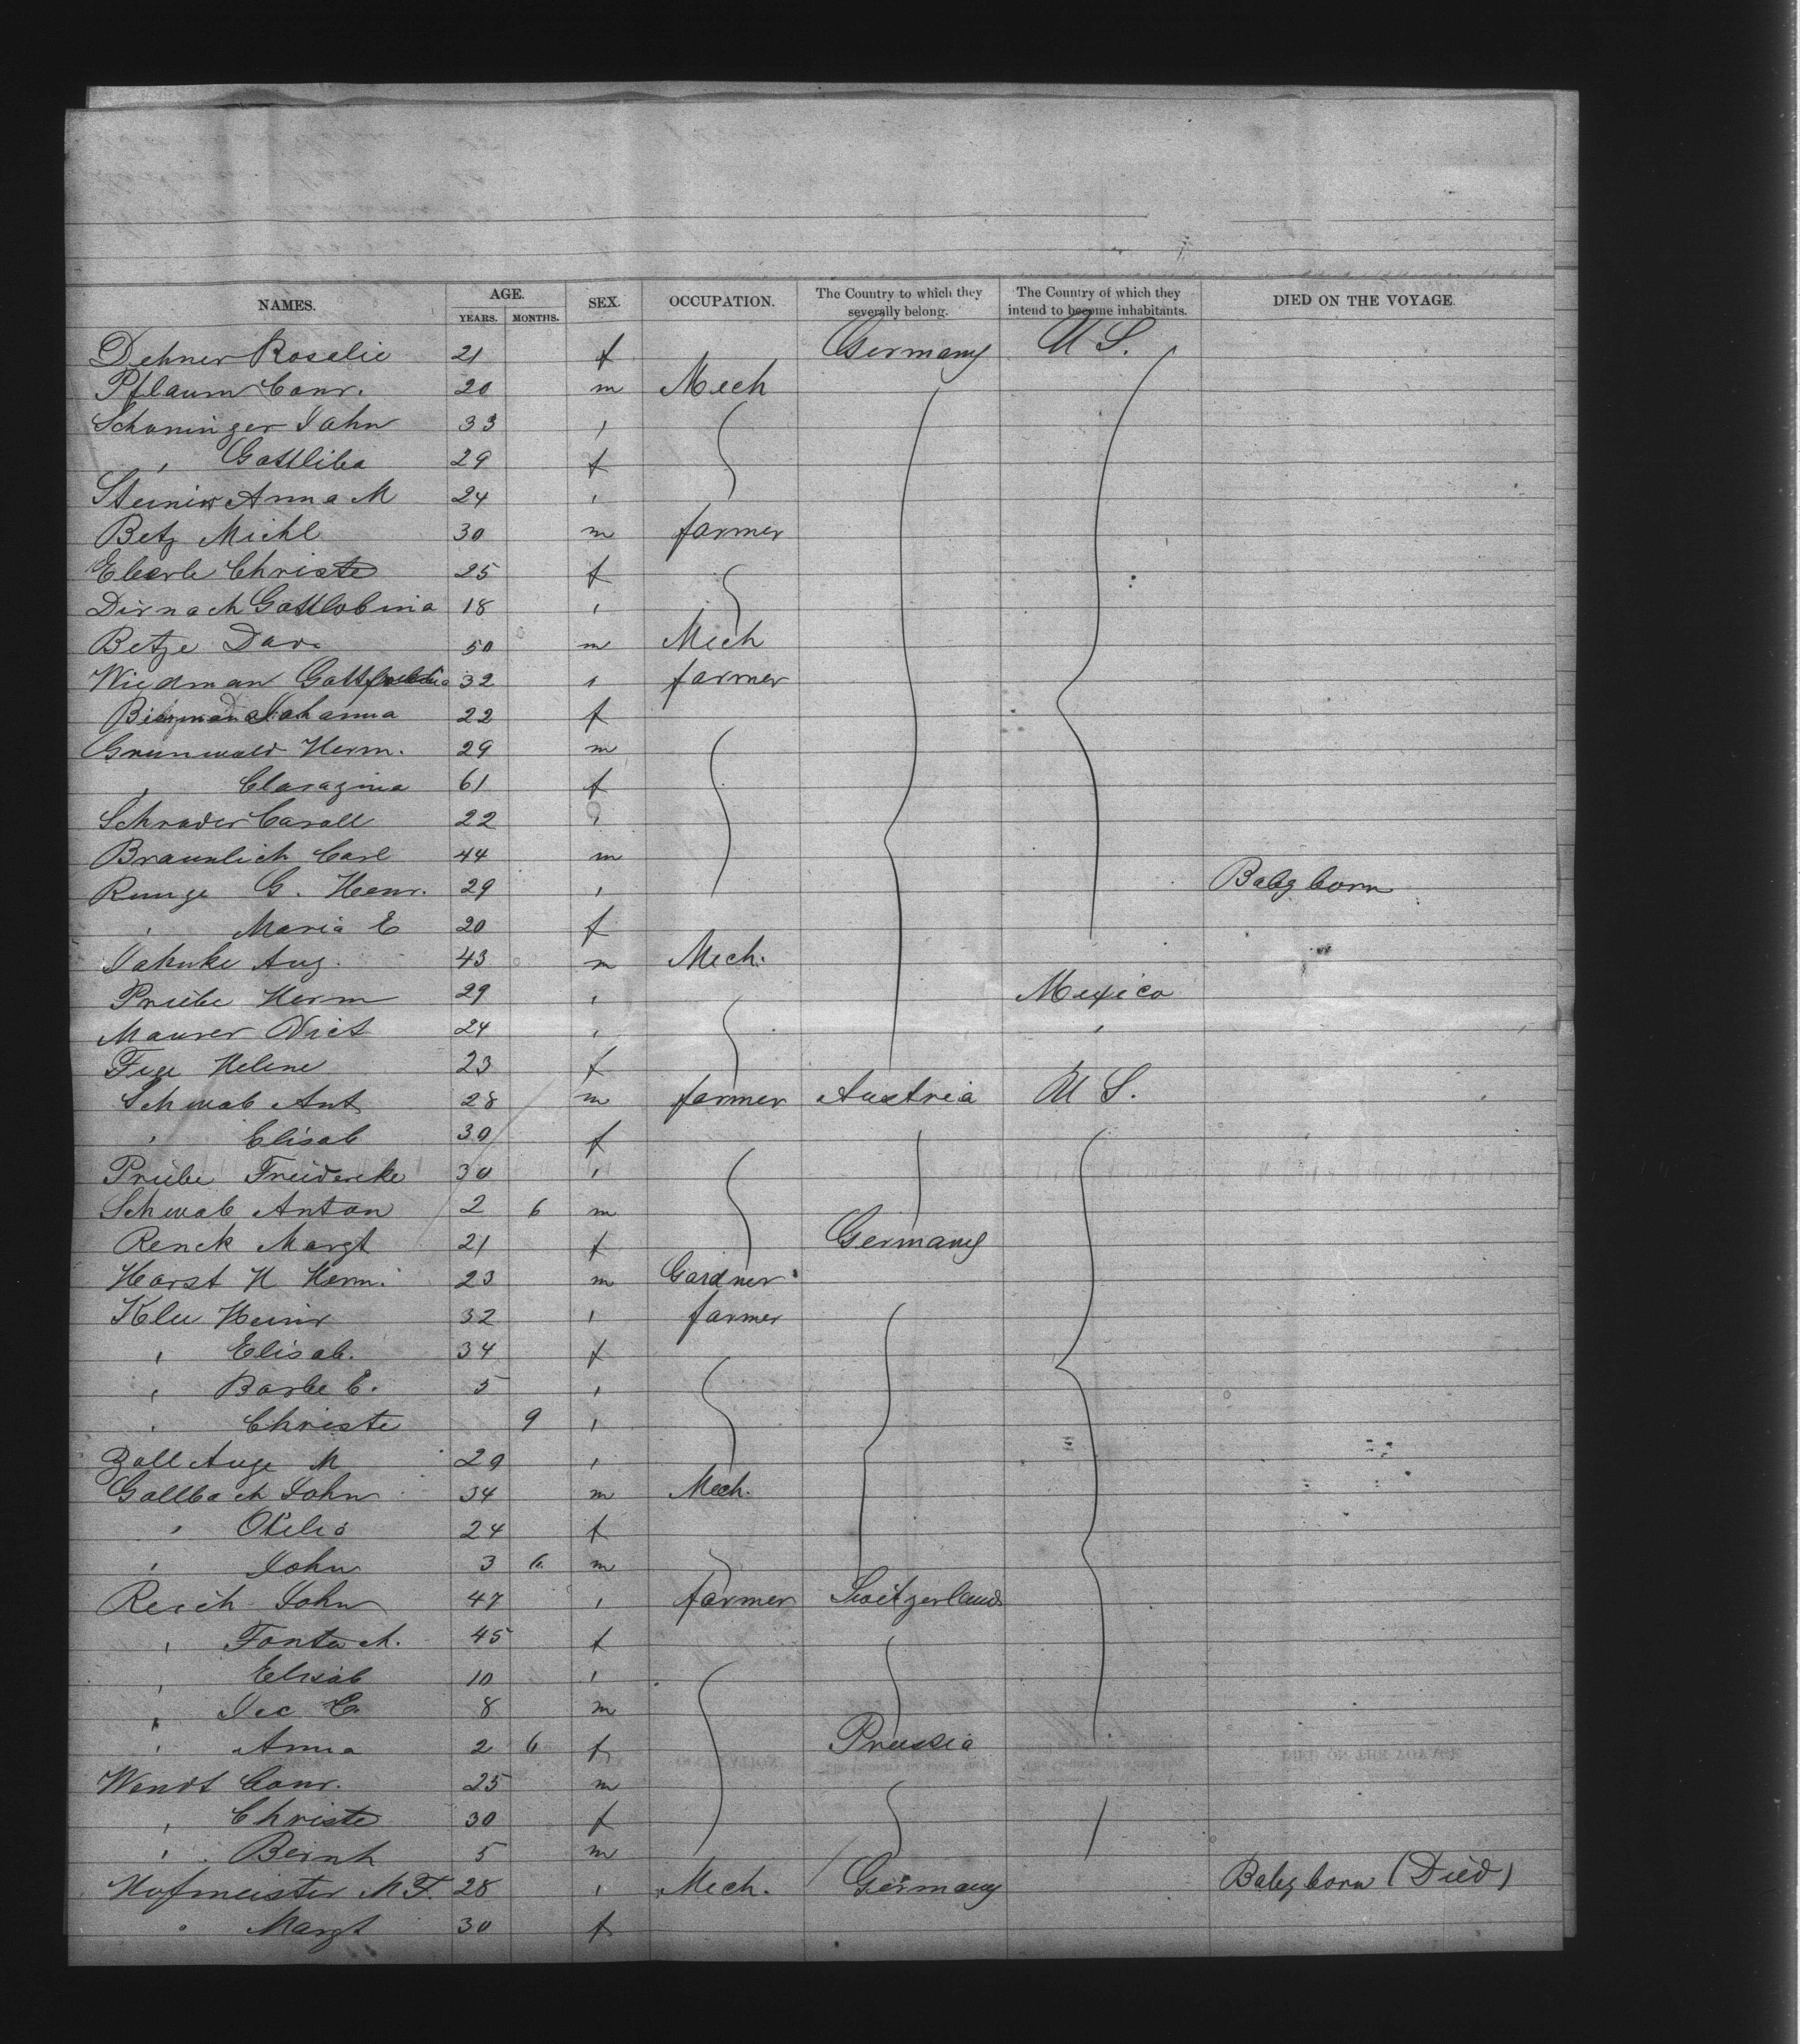 NAMES. AGE. SEX. OCCUPATION. The Country to which they severally belong. The Country of which they intend to become inhabitants. DIED ON THE VOYAGE.
YEARS. MONTHS.
Dehner Rosalie 21 f Germany U S.
Pflaum Conr. 20 m Mech
Schoninger John 33 "
" Gottliba 29 f
Anna M 24 "
Betz Michl 30 m farmer
Eberle Christe 25 f
Dirnach Gottlobina 18 "
Betze Dav. 50 m Mech
Wiedman 32 " farmer
Johanna 22 f
Grunwald Herm. 29 m
" Clarazina 61 f
Schrader Caroll 22 "
Braunlich Carl 44 m
Runge G. Henr. 29 " Baby born
" Maria E 20 f
Jahnke Aug. 43 m Mech.
Priebe Herm 29 " Mexico
Maurer Vict 24 " "
Fege Helene 23 f
Schwab Ant 28 m farmer Austria U S.
" Elisab 30 f
Priebe Freidereke 30 "
Schwab Anton 2 6 m
Renck Margt 21 f Germany
Horst H Herm. 23 m Gardner
Klee Heinr 32 " farmer
" Elisab. 34 f
" Barbe C. 5 "
" Christe 9 "
Zoll Auge M 29 "
Gollbach John 34 m Mech.
" Otilia 24 f
" John 3 6 m
Reich John 47 " farmer Switzerland
" 45 f
" Elisab 10 "
" 8 m
" Anna 2 6 f Prussia
Wendt Conr. 25 m
" Christe 30 f
" Bernh 5 m
Hofmeister M F. 28 " Mech. Germany Baby born (Died)
" Margt 30 f